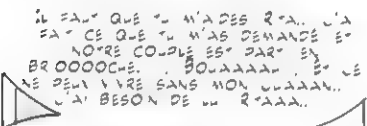 IL FAUT QUE TU M'AIDES RITAA.. J'AI
FAIT CE QUE TU M'AS DEMANDÉ ET
NOTRE COUPLE EST PARTI EN
BRIOOOCHE. BOUAAAAH, ET JE
NE PEUX VIVRE SANS MON LUAAAN..
J'AI BESOIN DE LUI RITAAA..